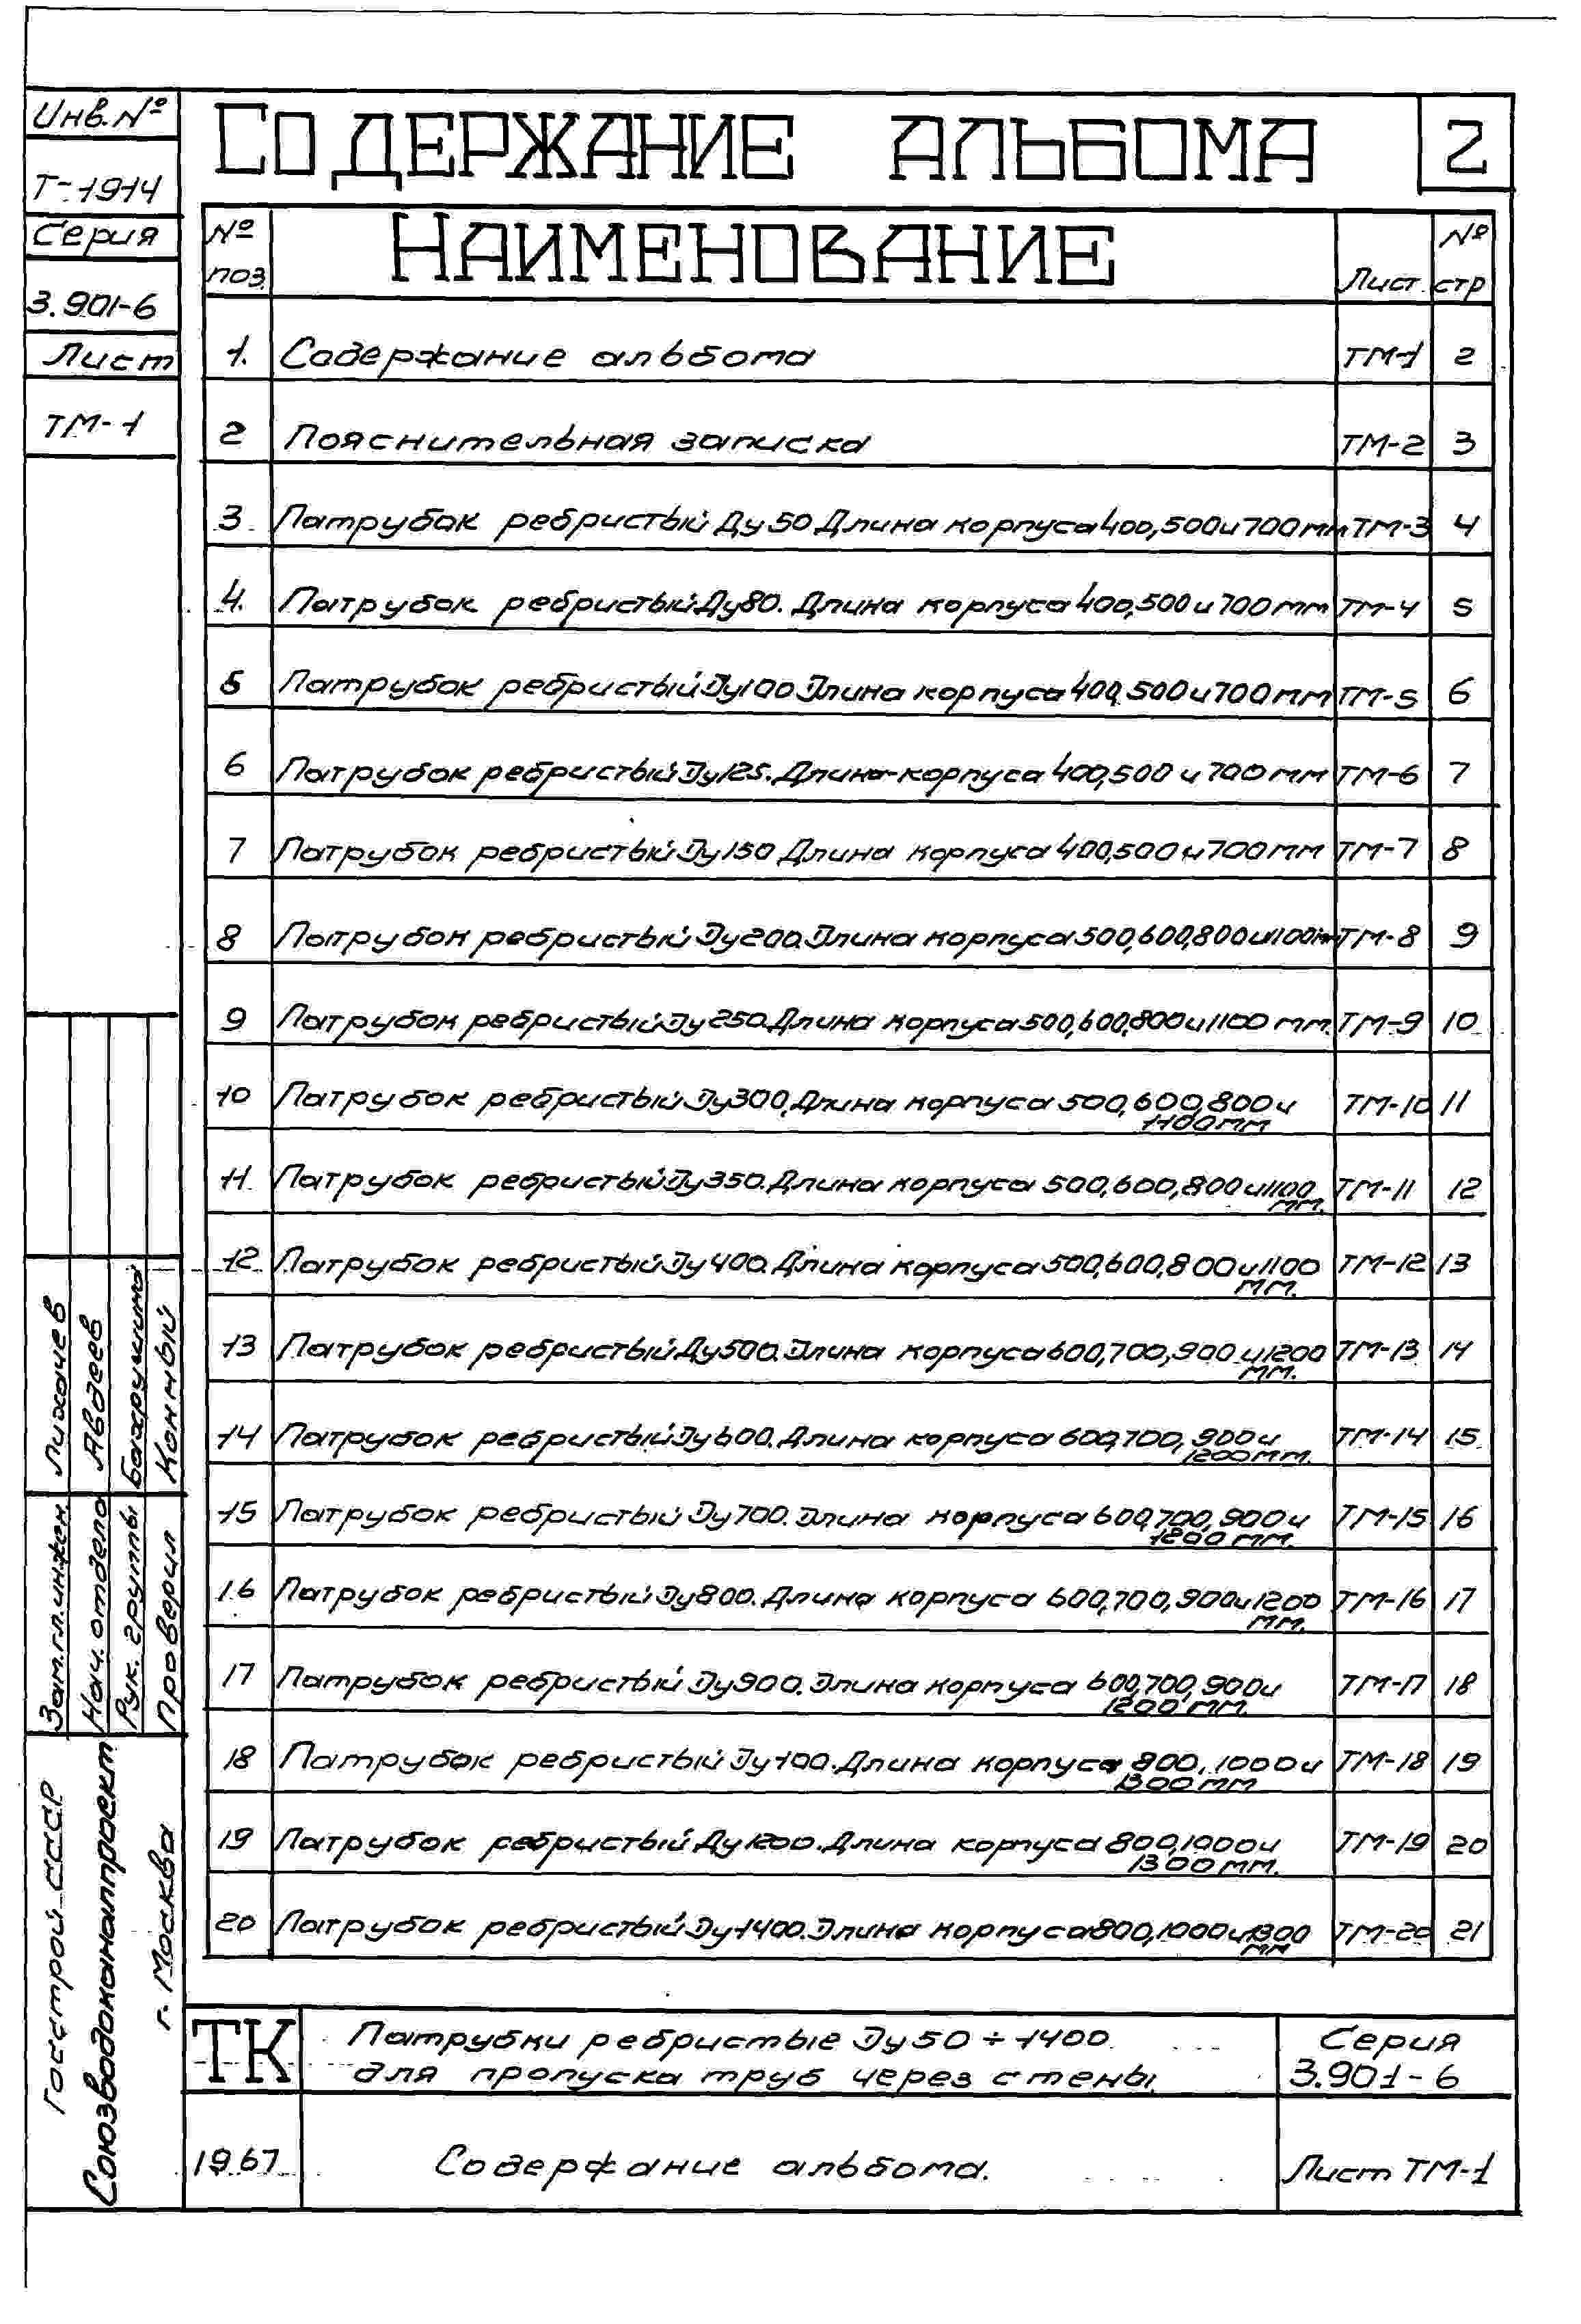 СОДЕРЖАНИЕ АЛЬБОМА 2
Инв. №
Т-1914
Серия
3.901-6
Лист
ТМ-1
№ поз. НАИМЕНОВАНИЕ Лист № стр
1. Содержание альбома ТМ-1 2
2 Пояснительная записка ТМ-2 3
3 Патрубок ребристый Ду 50 Длина корпуса 400, 500 и 700 мм ТМ-3 4
4. Патрубок ребристый Ду80. Длина корпуса 400, 500 и 700 мм ТМ-4 5
5 Патрубок ребристый Ду100 Длина корпуса 400, 500 и 700 мм ТМ-5 6
6 Патрубок ребристый Ду125. Длина корпуса 400, 500 и 700 мм ТМ-6 7
7 Патрубок ребристый Ду150 Длина корпуса 400, 500 и 700 мм ТМ-7 8
8 Патрубок ребристый Ду200. Длина корпуса 500, 600, 800 и 1100 мм ТМ-8 9
9 Патрубок ребристый Ду 250. Длина корпуса 500, 600, 800 и 1100 мм. ТМ-9 10
10 Патрубок ребристый Ду300, Длина корпуса 500, 600, 800 и 1100 мм ТМ-10 11
11. Патрубок ребристый Ду350. Длина корпуса 500, 600, 800 и 1100 мм. ТМ-11 12
12 Патрубок ребристый Ду 400. Длина корпуса 500, 600, 800 и 1100 мм. ТМ-12 13
13 Патрубок ребристый Ду500. Длина корпуса 600, 700, 900 и 1200 мм. ТМ-13 14
14 Патрубок ребристый Ду 600. Длина корпуса 600, 700, 900 и 1200 мм. ТМ-14 15
15 Патрубок ребристый Ду 700. Длина корпуса 600, 700, 900 и 1200 мм. ТМ-15 16
16 Патрубок ребристый Ду800. Длина корпуса 600, 700, 900 и 1200 мм. ТМ-16 17
17 Патрубок ребристый Ду900. Длина корпуса 600, 700, 900 и 1200 мм. ТМ-17 18
18 Патрубок ребристый Ду 100. Длина корпуса 800, 1000 и 1300 мм ТМ-18 19
19 Патрубок ребристый Ду 1200. Длина корпуса 800, 1000 и 1300 мм. ТМ-19 20
20 Патрубок ребристый Ду 1400. Длина корпуса 800, 1000 и 1300 мм ТМ-20 21
Зам. гл. инжен. Лихачев
Нач. отдела Авдеев
Рук. группы Бахрушина
Проверил Конный
Госстрой СССР
Союзводоканалпроект
г. Москва
ТК Патрубки ребристые Ду 50 ÷ 1400
для пропуска труб через стены.
Серия
3.901-6
1967 Содержание альбома. Лист ТМ-1